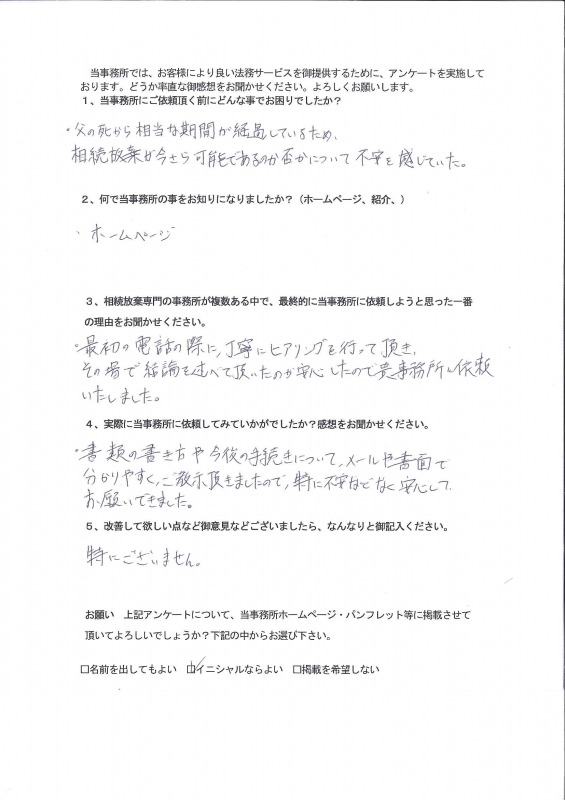 当事務所では、お客様により良い法務サービスを御提供するために、アンケートを実施して
おります。どうか率直な御感想をお聞かせください。よろしくお願いします。
1、当事務所にご依頼頂く前にどんな事でお困りでしたか？
・父の死から相当な期間が経過しているため、
相続放棄が今さら可能であるのか否かについて不安を感じていた。
2、何で当事務所の事をお知りになりましたか？（ホームページ、紹介、）
・ホームページ
3、相続放棄専門の事務所が複数ある中で、最終的に当事務所に依頼しようと思った一番
の理由をお聞かせください。
・最初の電話の際に、丁寧にヒアリングを行って頂き、
その場で結論を述べて頂いたのが安心したので貴事務所に依頼
いたしました。
4、実際に当事務所に依頼してみていかがでしたか？感想をお聞かせください。
・書類の書き方や今後の手続きについて、メールや書面で
分かりやすく、ご教示頂きましたので、特に不安などなく安心して
お願いできました。
5、改善して欲しい点など御意見などございましたら、なんなりと御記入ください。
特にございません。
お願い　上記アンケートについて、当事務所ホームページ・パンフレット等に掲載させて
頂いてよろしいでしょうか？下記の中からお選び下さい。
□名前を出してもよい　☑イニシャルならよい　□掲載を希望しない